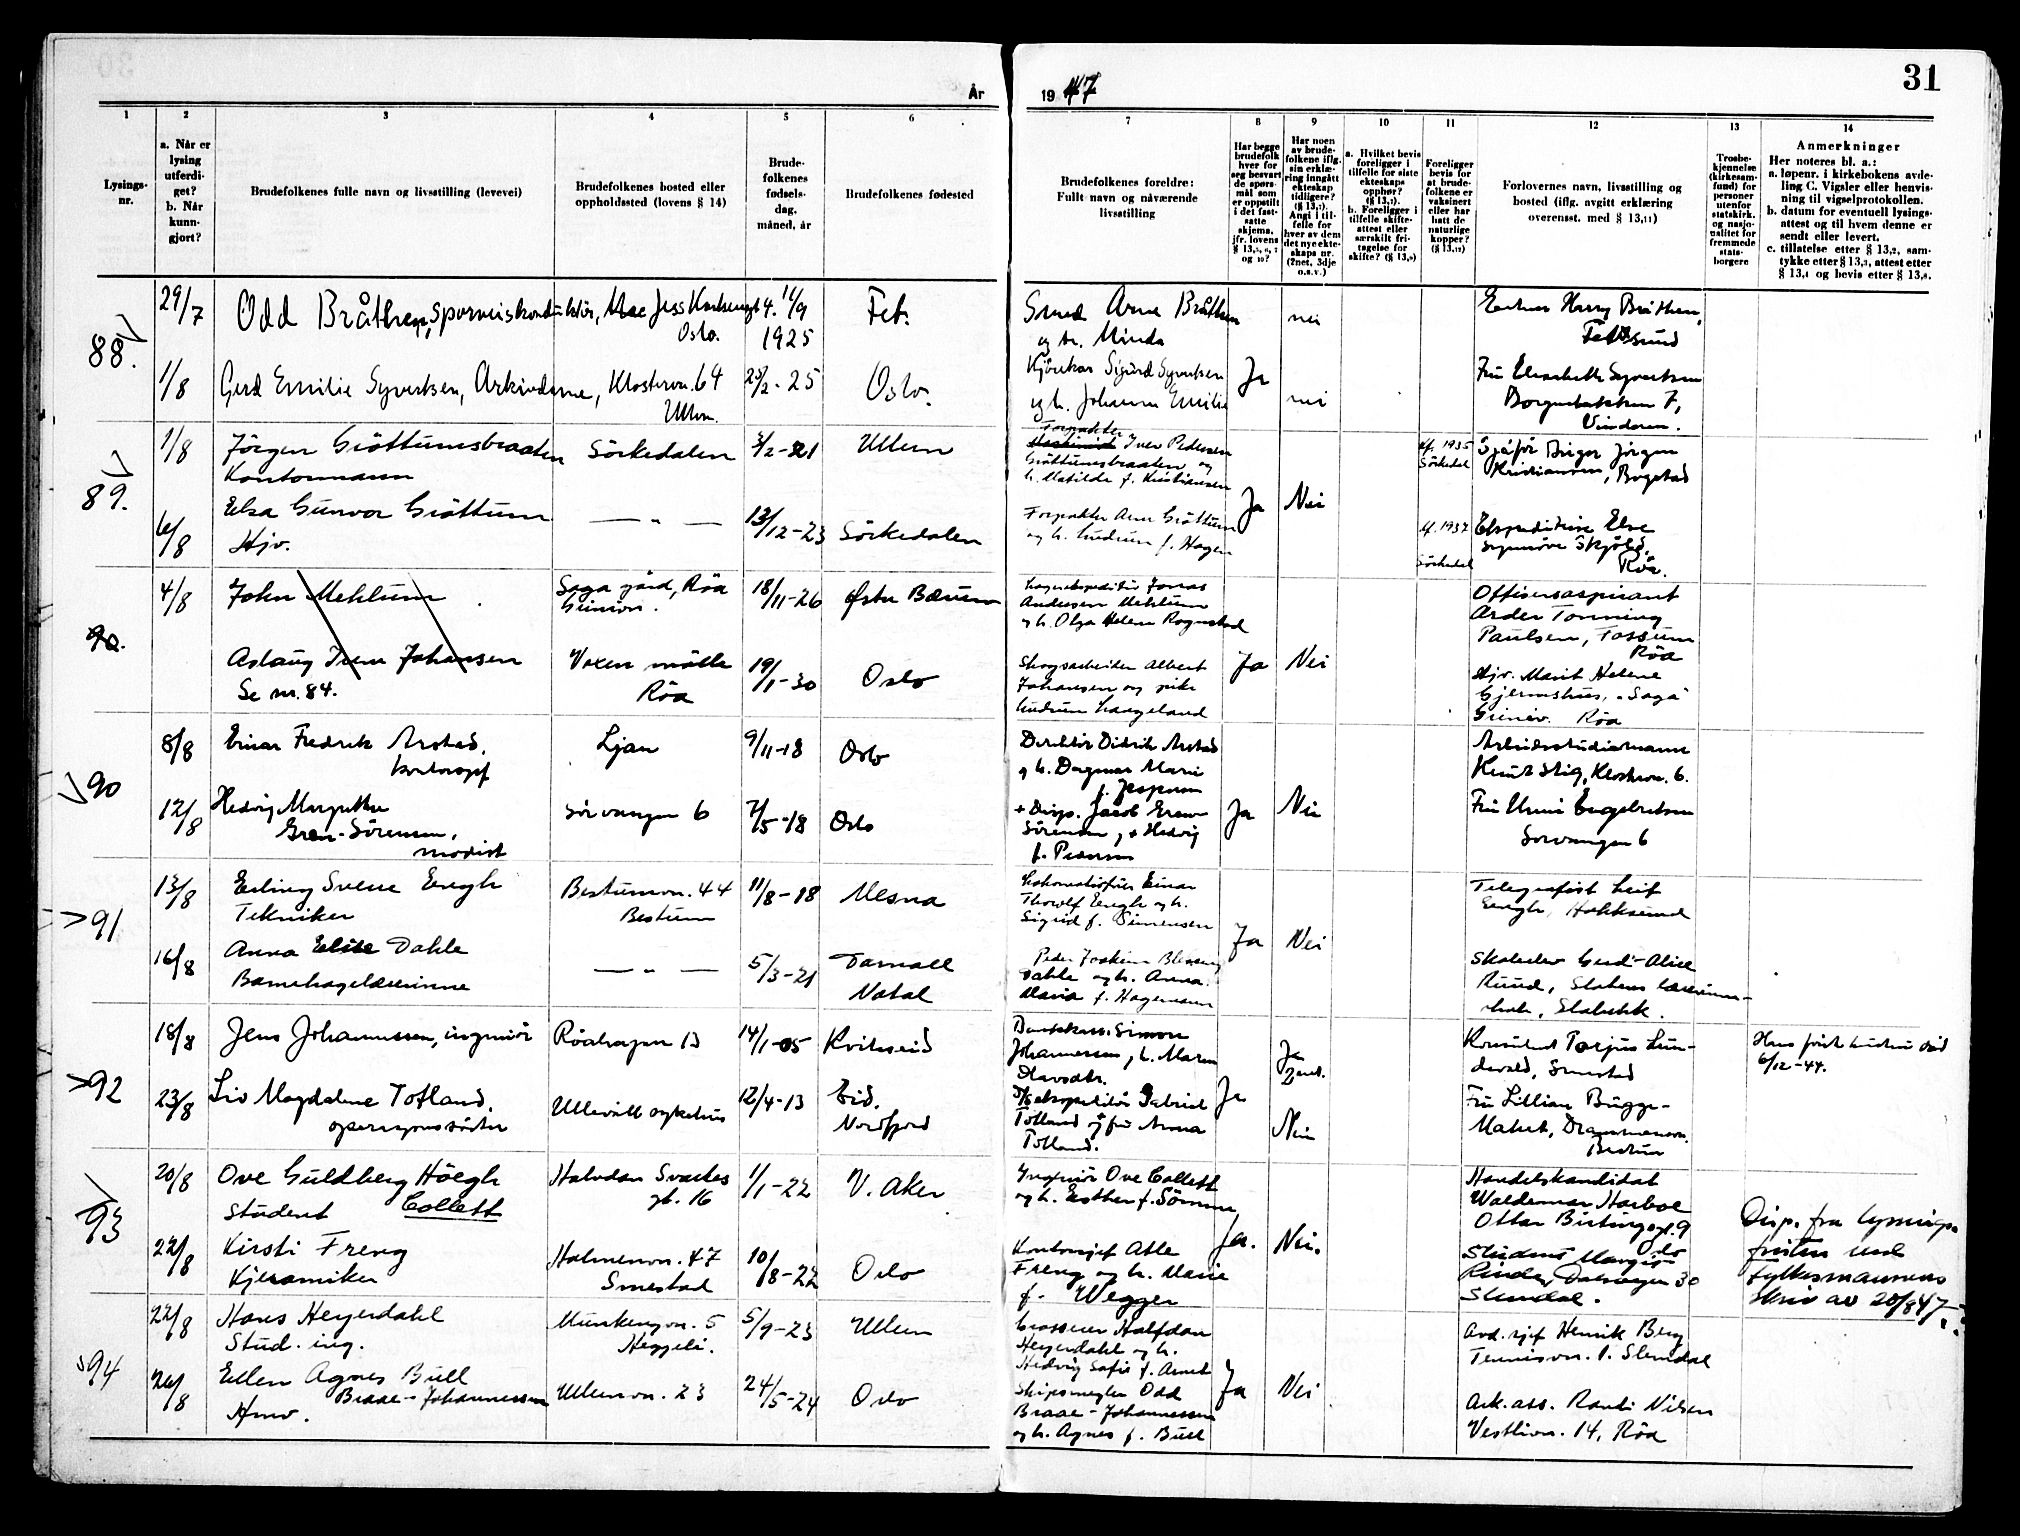 31
År
19 47
1
2
3
4
5
6
7
8
9
10
11
12
13
14
Lysings-
nr.
a. Når er
lysing
utferdi-
get?
b. Når
kunn-
gjort?
Brudefolkenes fulle navn og livsstilling (levevei)
Brudefolkenes bosted eller
oppholdssted (lovens § 14)
Brude-
folkenes
fødsels-
dag,
måned, år
Brudefolkenes fødested
Brudefolkenes foreldre:
Fullt navn og nåværende
livsstilling
Har begge
brudefolk
hver for
seg besvart
de spørs-
mål som
er oppstilt
i det fast-
satte
skjema,
jfr. lovens
Har noen
av brude-
folkene iflg.
sin erklæ-
ring inngått
ekteskap
tidligere?
(§ 13,7).
Angi i til-
felle for
hver av dem
det nye ekte-
skaps nr.
(2net, 3dje
o.s.v.)
a. Hvilket bevis
foreligger i
tilfelle for siste
ekteskaps
opphør?
(§ 13,7).
b. Foreligger i
tilfelle skifte-
attest eller
særskilt fri-
tagelse for
skifte? (§ 13,9)
Foreligger
bevis for
at brude-
folkene er
vaksinert
eller har
hatt de
naturlige
kopper?
Forlovernes navn, livsstilling og
bosted (iflg. avgitt erklæring
overensst. med § 13,11)
Trosbe-
kjennelse
(kirkesam-
fund) for
personer
utenfor
statskirk.
og nasjo-
nalitet for
fremmede
stats-
borgere
Anmerkninger
Her noteres bl. a.:
a. løpenr. i kirkebokens avde-
ling C. Vigsler eller henvis-
ning til vigselprotokollen.
b. datum for eventuell lysings-
attest og til hvem denne er
sendt eller levert.
c. tillatelse etter § 13,2, sam-
tykke etter § 13,3, attest etter
§ 13,4 og bevis etter § 13,8.
88.
29/7
Odd Bråthen,
Oslo.
11/9
1925
Fet.
Smed Arne Bråthen
og h. Minda
nei
Harry Bråthen,
Fetsund
1/8
Gerd Emilie Syvertsen, Klosterv. 64
Ullern.
25/2-25
Oslo.
Sigurd Syvertsen
og h. Johanne Emilie
Ja
nei
Fru Elisabeth Syvertsen
7,
Vinderen.
89.
1/8
Jörgen Gröttumsbraaten
Kontormann
Sörkedalen
3/2-21
Ullern
Forpakter
Iver Pedersen
Gröttumsbraaten og
h. Matilde f. Kristiansen
Ja
Nei
1935
Sörkedal
Sjåför Birger Jörgen
Kristiansen, Bogstad
6/8
Elsa Gunvor Gröttum
Hjv.
— „ —
13/12-23
Sörkedalen
Forpakter Arne Gröttum
og h. Gudrun f. Hagen
1937
Sörkedal
Else
Synnöve Skjöld,
Röa.
90.
4/8
John Mehlum
Saga gård, Röa
18/11-26
Østre Bærum
Lagerekspeditör Jonas
Andersen Mehlum
og h. Olga Helene Rognstad
Offisersaspirant
Arder Tonning
Paulsen, Fossum
Röa
Aslaug Irene Johansen
Se nr. 84.
Voxen mölle
Röa
19/1-30
Oslo
Skogsarbeider Albert
Johansen og pike
Gudrun Langeland
Ja
Nei
Hjv. Marit Helene
Gjermshus, „Saga"
Griniv. Röa
90
8/8
Einar Fredrik Arstad,
kontorsjef
Ljan
9/11-18
Oslo
Direktör Didrik Arstad
og h. Dagmar Marie
f. Jespersen
Arbeidsstudiemann
Knut Stig, Klosterv. 6.
12/8
Hedvig Margrethe
Gran-Sörensen,
modist
Sörvangen 6
7/5-18
Oslo
+ Disp. Jacob Gran
Sörensen og + Hedvig
f. Pedersen
Ja
Nei
Fru Unni Engebretsen
Sorvangen 6
91
13/8
Erling Svein Eengh
Tekniker
Bestumv. 44
Bestum
11/8-18
Mesna
Lokomotivförer Einar
Thorolf Eengh og h.
Sigrid f. Simensen
Telegrafist Leif
Eengh, Hokksund
16/8
Anna Elise Dahle
Barnehagelærerinne
— „ —
5/3-21
Natal
Peder Joakim
Dahle og h. Anna
Maria f. Hagemann
Ja
Nei
Gerd-Alice
Ruud, Statens
Stabekk.
92
18/8
Jens Johannessen, ingeniör
Röahagen 13
14/1-05
Kviteseid
Simon
Johannessen og h. Maren
Olavsdtr.
Ja
Konsulent Torjus Lun-
devald, Smestad
6/12-44.
23/8
Liv Magdalene Totland,
operasjonssöster
Ullevåll sykehus
12/4-13
Eid,
Nordfjord
Gabriel
Totland og fru Anna
Totland.
Ja
Nei
Fru Lillian Bugge-
Drammensv.
Bestum
93
20/8
Ove Guldberg Höegh
student Collett
Halvdan Svartes
gt. 16
1/1-22
V. Aker
Ingeniör Ove Collett
og h. Esther f. Sömme
Ja.
Nei.
Handelskandidat
Waldemar Harboe
Ottar Birtingsgt. 9
Oslo
Disp. fra lysnings-
fristen ved
Fylkesmannens
skriv av 20/8 47.
22/8
Kirsti Freng
Kjeramiker
Holmenv. 47
Smestad
10/8-22
Oslo
Kontorsjef Atle
Freng og h. Marie
f. Wegger
Student Margit
Rinde, Dalsvegen 30
Slemdal.
94
22/8
Hans Heyerdahl
Stud. ing.
Munkengv. 5
Heggeli.
5/9-23
Ullern
Grosserer Halfdan
Heyerdahl og h.
Hedvig Sofie f. Arnet
Avd. sjef Henrik Berg
Tennisv. 1. Slemdal
26/8
Ellen Agnes Bull
Braae-Johannessen
Ullernv. 23
24/5-24
Oslo
Skipsmegler Odd
Braae-Johannessen
og h. Agnes f. Bull
Ja
Nei
Ark. ass. Randi Nilsen
Vestliv. 14, Röa